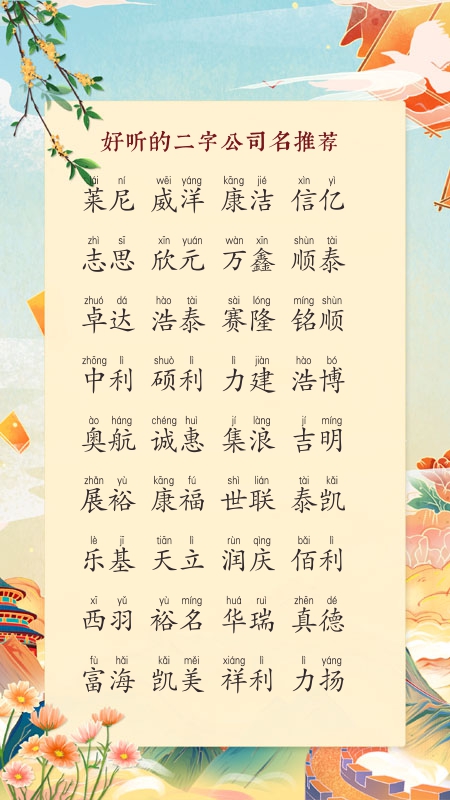 好听的二字公司名推荐
lái ní wēi yáng kāng jié xìn yì
莱尼 威洋 康洁 信亿
zhì sī xīn yuán wàn xīn shùn tài
志思 欣元 万鑫 顺泰
zhuó dá hào tài sài lóng míng shùn
卓达 浩泰 赛隆 铭顺
zhōng lì shuò lì lì jiàn hào bó
中利 硕利 力建 浩博
ào háng chéng huì jí làng jí míng
奥航 诚惠 集浪 吉明
zhǎn yù kāng fú shì lián tài kǎi
展裕 康福 世联 泰凯
lè jī tiān lì rùn qìng bǎi lì
乐基 天立 润庆 佰利
xī yǔ yù míng huá ruì zhēn dé
西羽 裕名 华瑞 真德
fù hǎi kǎi měi xiáng lì lì yáng
富海 凯美 祥利 力扬